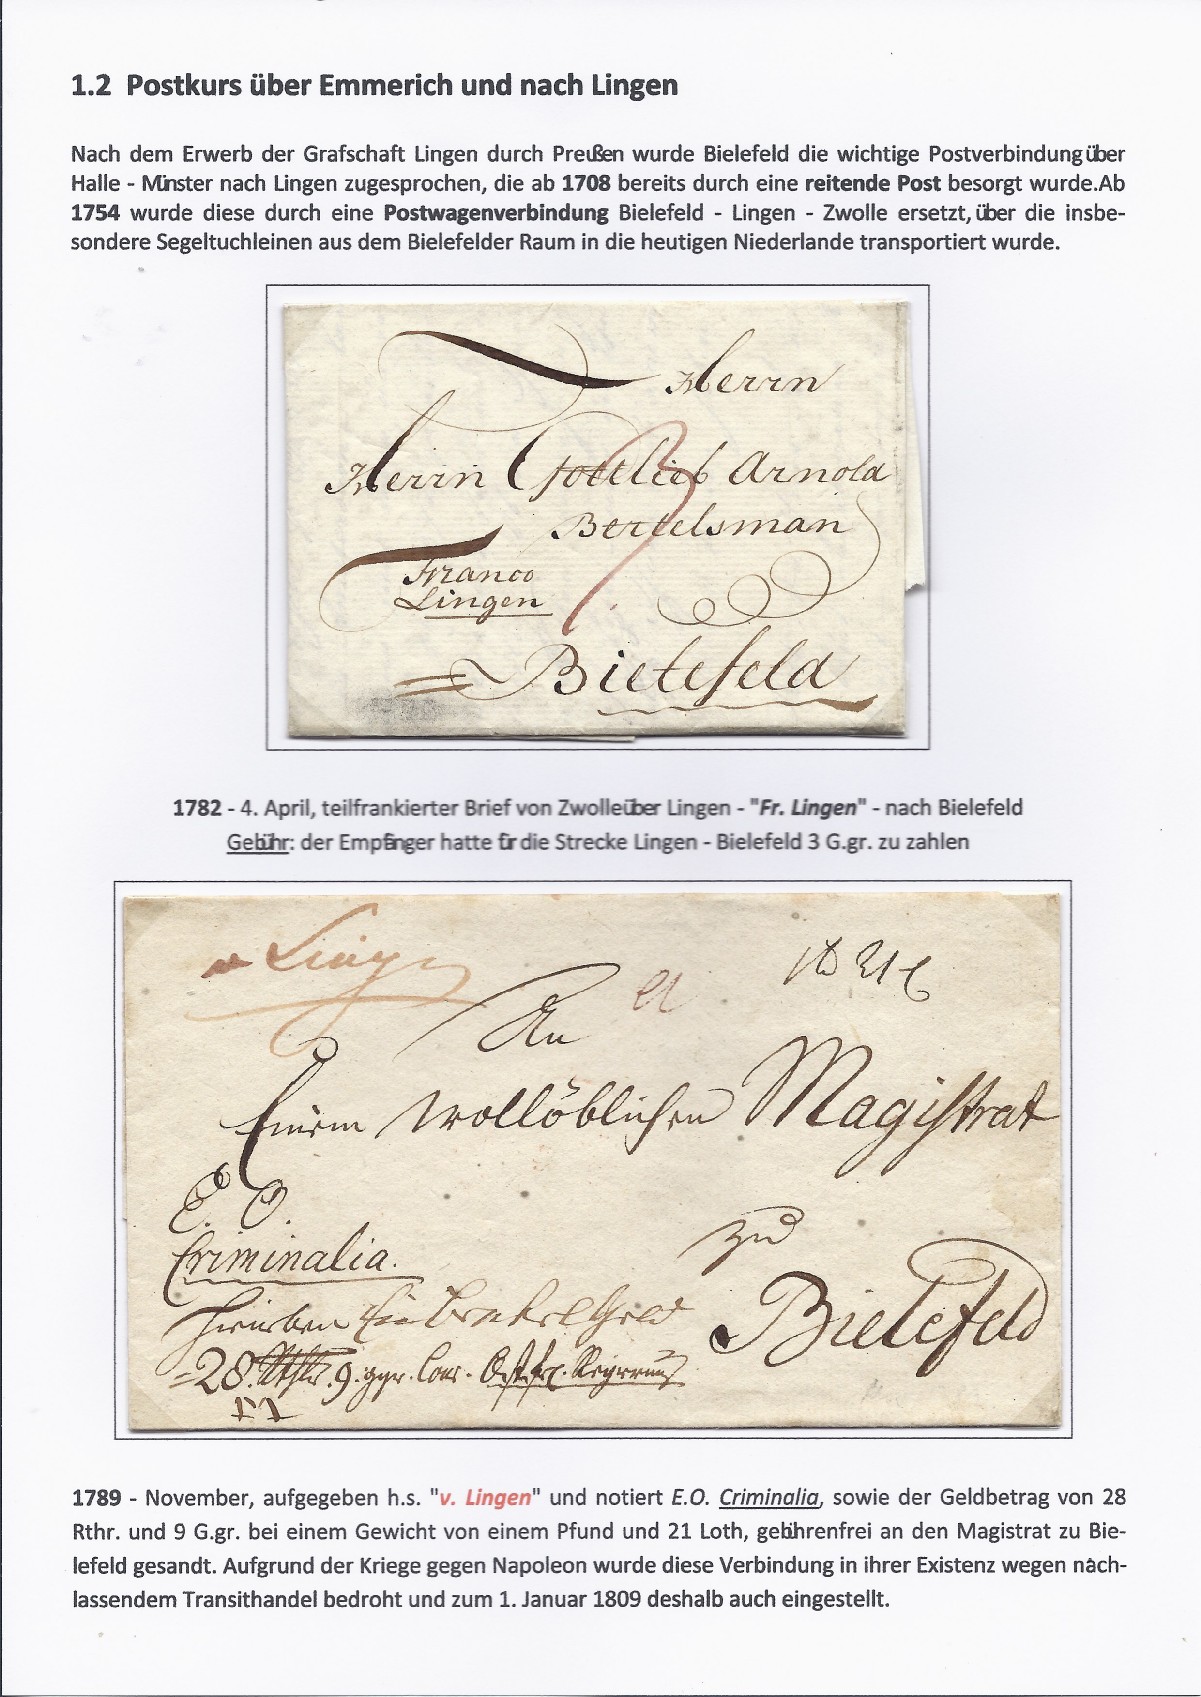 1.2 Postkurs über Emmerich und nach Lingen
Nach dem Erwerb der Grafschaft Lingen durch Preußen wurde Bielefeld die wichtige Postverbindung über
Halle - Münster nach Lingen zugesprochen, die ab 1708 bereits durch eine reitende Post besorgt wurde.Ab
1754 wurde diese durch eine Postwagenverbindung Bielefeld - Lingen - Zwolle ersetzt, über die insbe-
sondere Segeltuchleinen aus dem Bielefelder Raum in die heutigen Niederlande transportiert wurde.
Herrn
Herrn Gottlieb Arnold
Bertelsman
Franco
Lingen
3
Bielefeld
1782 - 4. April, teilfrankierter Brief von Zwolle über Lingen - "Fr. Lingen" - nach Bielefeld
Gebühr: der Empfänger hatte für die Strecke Lingen - Bielefeld 3 G.gr. zu zahlen
v Lingen
An
Einem Wollöblichen Magistrat
E. O.
Criminalia.
zu
Bielefeld
28 Rthlr. 9. ggr.
1789 - November, aufgegeben h.s. "v. Lingen" und notiert E.O. Criminalia, sowie der Geldbetrag von 28
Rthr. und 9 G.gr. bei einem Gewicht von einem Pfund und 21 Loth, gebührenfrei an den Magistrat zu Bie-
lefeld gesandt. Aufgrund der Kriege gegen Napoleon wurde diese Verbindung in ihrer Existenz wegen nach-
lassendem Transithandel bedroht und zum 1. Januar 1809 deshalb auch eingestellt.